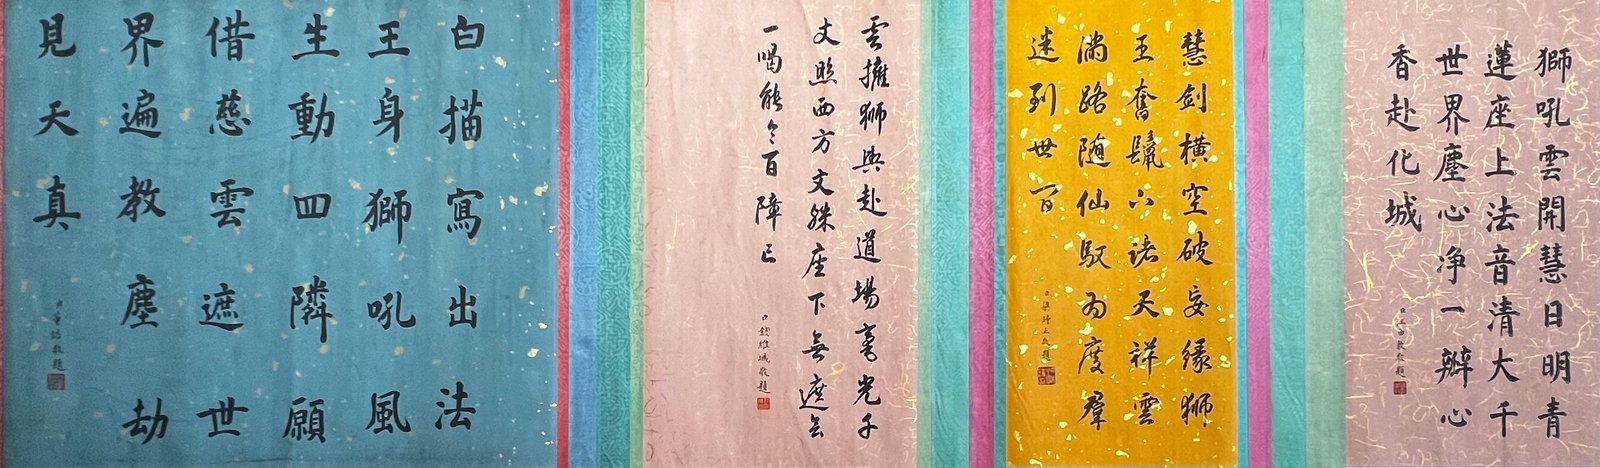 獅吼雲開慧日明青
蓮座上法音清大千
世界塵心净一瓣心
香赴化城
敬題
慧劍橫空破妄緣獅
王奮鬣下諸天祥雲
滿路随仙馭為度羣
迷到世間
臣梁詩正敬題
雲擁獅輿赴道場毫光千
丈照西方文殊座下無遮會
一喝能令百障亡
臣錢維城敬題
白描寫出法
王身獅吼風
生動四隣願
借慈雲遮世
界遍教塵劫
見天真
臣董誥敬題